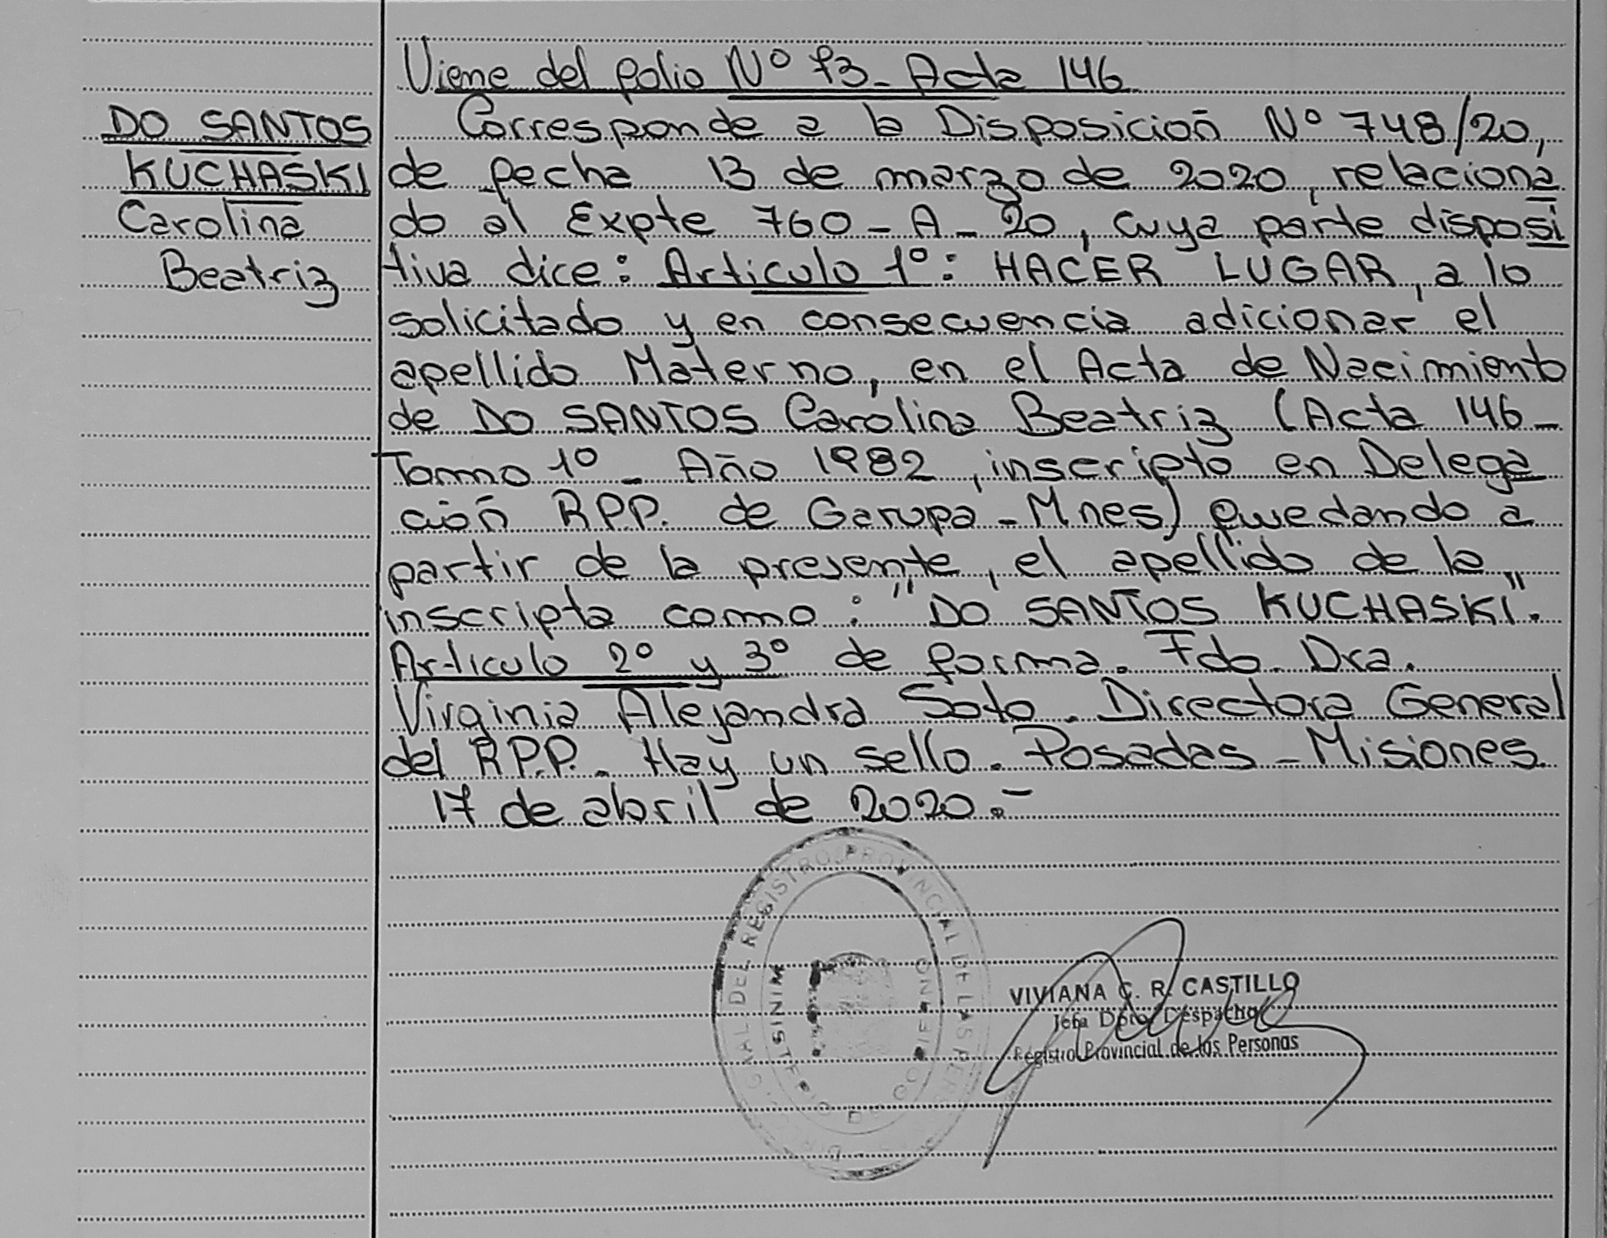 Viene del folio Nº 73 - Acta 146
DO SANTOS
KUCHASKI
Carolina
Beatriz
Corresponde a la Disposición Nº 748/20,
de fecha 13 de marzo de 2020, relaciona
do al Expte 760 - A - 20, cuya parte disposi
tiva dice: Articulo 1º: HACER LUGAR, a lo
solicitado y en consecuencia adicionar el
apellido Materno, en el Acta de Nacimiento
de DO SANTOS Carolina Beatriz (Acta 146 -
Tomo 1º - Año 1982, inscripto en Delega
ción RPP. de Garupa - Mnes) quedando a
partir de la presente, el apellido de la
inscripta como: "DO SANTOS KUCHASKI".
Articulo 2º y 3º de forma. Fdo. Dra.
Virginia Alejandra Soto. Directora General
del R.P.P. - Hay un sello. Posadas - Misiones
17 de abril de 2020.-
DEL REGISTRO PROVINCIAL DE LAS
MINISTERIO DE GOBIERNO
VIVIANA G. R. CASTILLO
Jefa Dpto. Despacho
Registro Provincial de las Personas